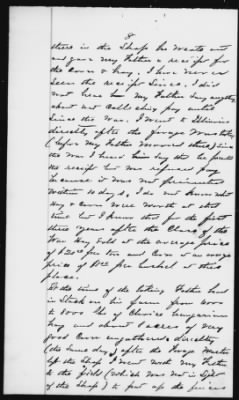 8
there in the Shop he wrote out
and gave my Father a receipt for
the corn & hay, I have never
seen the receipt since, I did
not hear my Father say anything
about not collecting pay until
since the War. I went to Illinois
directly after the forage was taken
(before my Father removed there) since
the War I heard him say that he presented
the receipt but was refused pay
because it was not presented
within 10 days, I do not know what
Hay & Corn were worth at that
time but I know that for the first
three years after the Close of the
War Hay sold at the average price
of $20 per ton and Corn at an average
price of per bushel at this
place.
At the time of the taking Father had
in Stack on his farm from 6000
to 8000 lbs of Choice Hungarian
hay and about 8 acres of very
good Corn ungathered, directly
(the same day) after the Forage Master
left the Shop I went with my Father
to the field (which was not in sight
of the Shop) to put up the fences